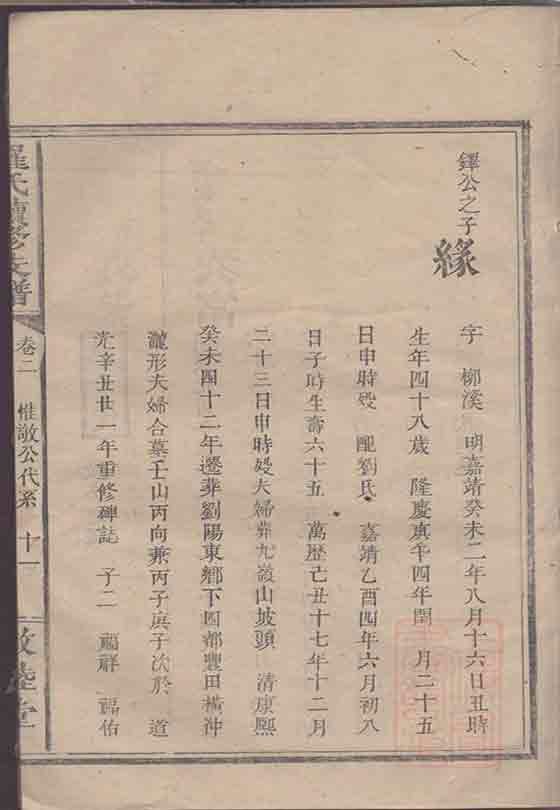 鐸公之子
緣
字 柳溪 明嘉靖癸未二年八月十六日丑時
生年四十八歲 隆慶庚午四年閏 月二十五
日申時歿 配劉氏 嘉靖乙酉四年六月初八
日子時生壽六十五 萬歷己丑十七年十二月
二十三日申時歿夫婦葬九嶺山坡頭 清康熙
癸未四十二年遷葬劉陽東鄉下四都豐田橫沖
形夫婦合墓壬山丙向兼丙子庚子次於 道
光辛丑廿一年重修碑誌 子二 福祥 福佑
羅氏續修支譜
卷二 惟敬公代系 十一
敦陸堂